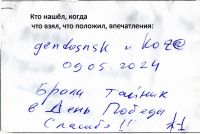 Кто нашёл, когда
что взял, что положил, впечатления:
gendosnsk и KOZ@
09.05.2024
Брали тайник
в День Победы
Спасибо !!!